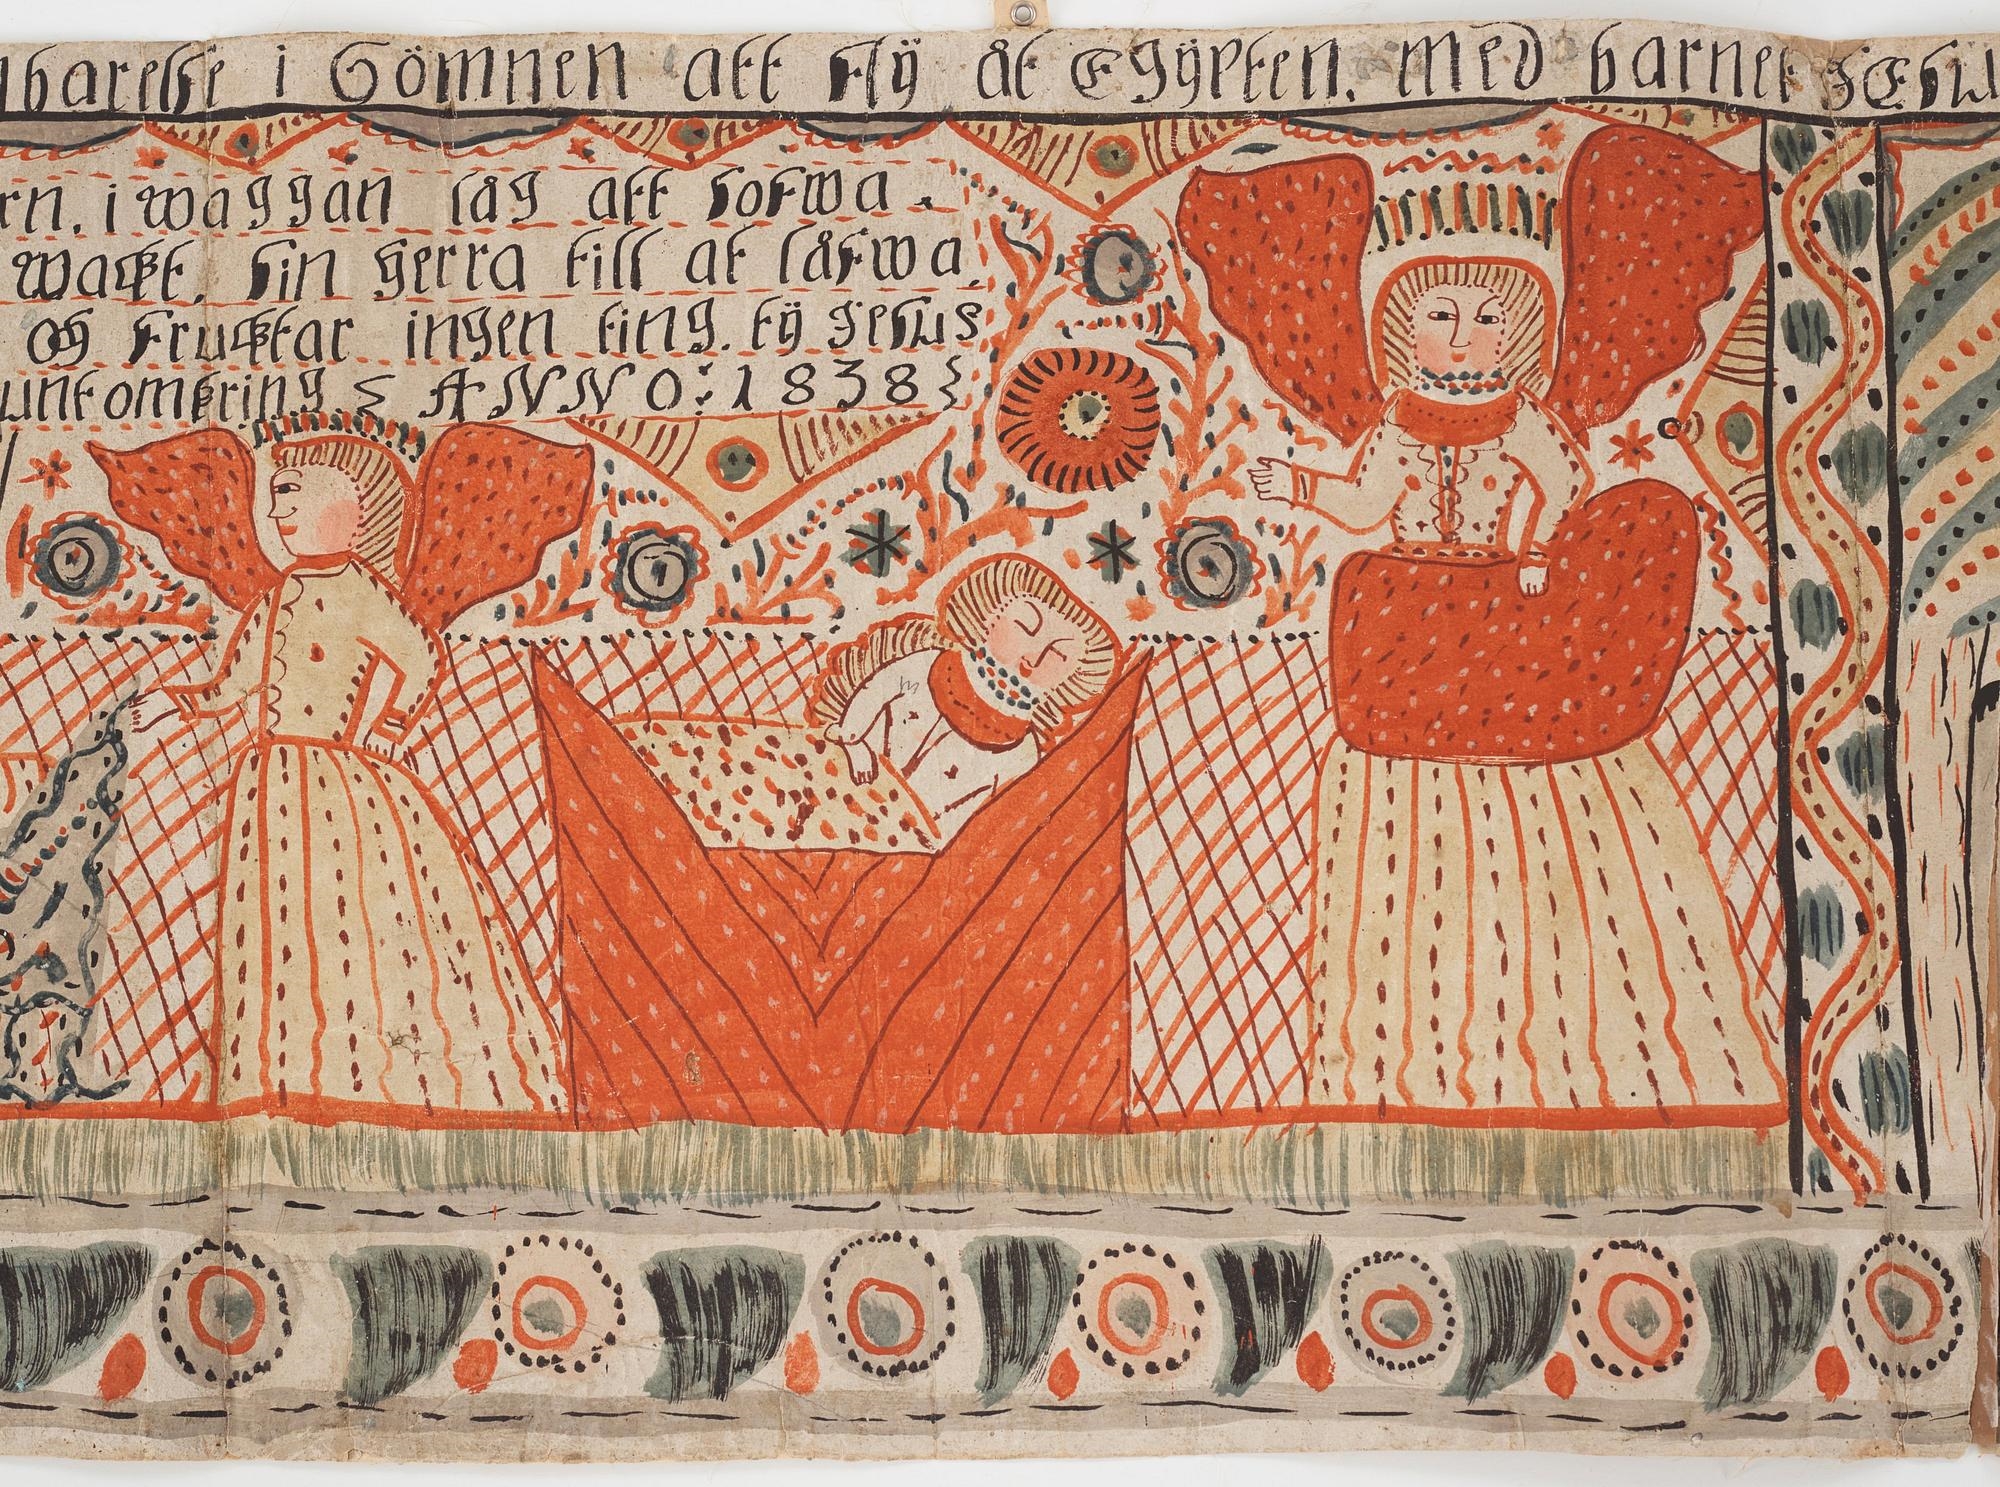 nbarelse i Sömnen att Flÿ åt Egÿpten. med barnet JEsu
rn. i waggan låg att Sofwa.
wackt. Sin Herra till at låfwa.
Og Fruchtar ingen ting. tÿ JEsus
unkomkring ANNO: 1838